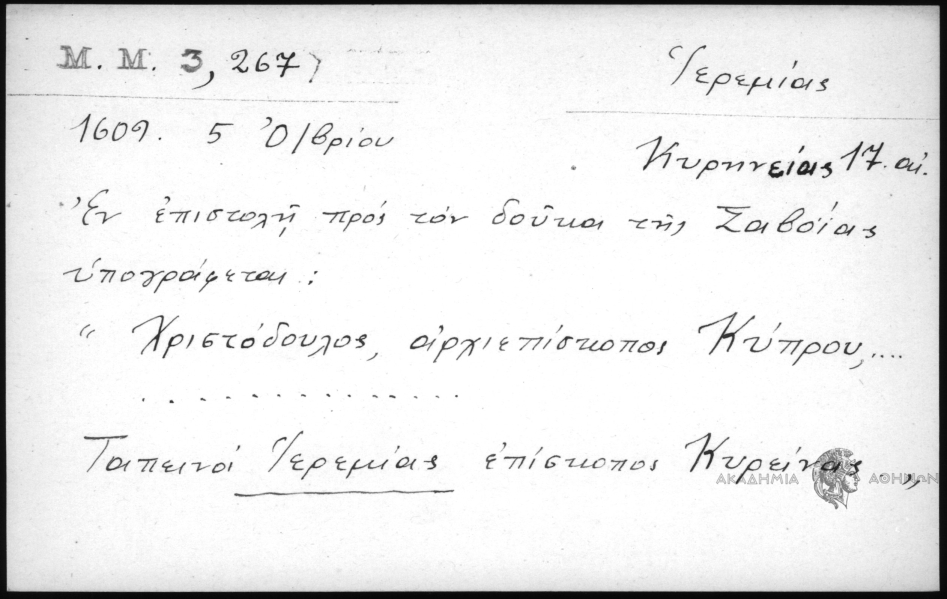 Μ. Μ. 3, 267
Ἱερεμίας
1609. 5 Ὀ/βρίου
Κυρηνείας 17. αἰ.
Ἐν ἐπιστολῇ πρὸς τὸν δοῦκα τῆς Σαβοΐας
ὑπογράφεται :
" Χριστόδουλος, ἀρχιεπίσκοπος Κύπρου, ....
. . . . . . . . . . . . . .
Ταπεινὸ Ἱερεμίας ἐπίσκοπος Κυρείνας „
ΑΚΑΔΗΜΙΑ ΑΘΗΝΩΝ